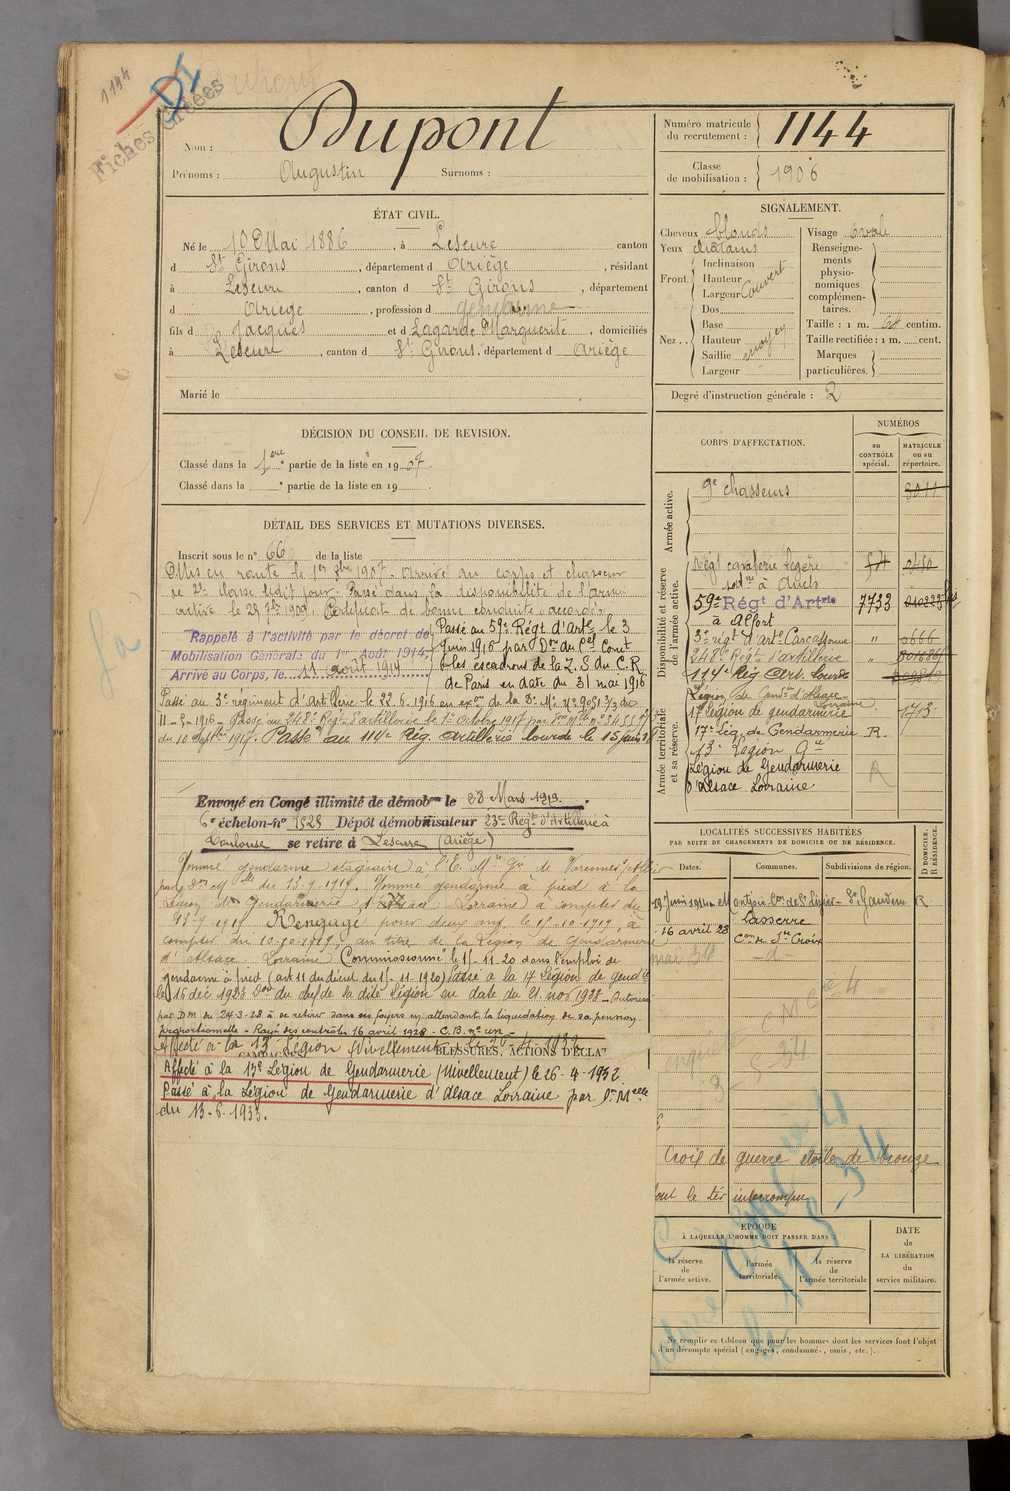 1144
Fiches Créées
Nom : Dupont
Prénoms : Augustin Surnoms :
Numéro matricule du recrutement : 1144
Classe de mobilisation : 1906
ÉTAT CIVIL.
Né le 10 Mai 1886, à Lescure canton
d St Girons, département d Ariège, résidant
à Lescure, canton d St Girons, département
d Ariège, profession d gendarme
fils d Jacques et d Lagarde Marguerite, domiciliés
à Lescure, canton d St Girons, département d Ariège
Marié le
SIGNALEMENT.
Cheveux blonds
Yeux châtains
Front. Inclinaison
Hauteur
Largeur
Couvert
Nez.. Dos
Base
Hauteur
Saillie
Largeur
moyen
Visage Ovale
Renseignements physionomiques complémentaires.
Taille : 1 m. centim.
Taille rectifiée : 1 m. cent.
Marques particulières.
Degré d'instruction générale : 2
DÉCISION DU CONSEIL DE REVISION.
Classé dans la 1ere partie de la liste en 1907.
Classé dans la e partie de la liste en 19
DÉTAIL DES SERVICES ET MUTATIONS DIVERSES.
Inscrit sous le n° 66 de la liste
Mis en route le 1er 8bre 1907. Arrivé au corps et chasseur
de 2e classe ledit jour. Passé dans la disponibilité de l'armée
active le 28 7bre 1909. Certificat de bonne conduite accordé.
Rappelé à l'activité par le décret de
Mobilisation Générale du 1er Août 1914.
Arrivé au Corps, le 11 août 1914
Passé au 59e Régt d'Arte le 3
Juin 1916 par Don du Cel Comt
les escadrons de la Z. S du C. R
de Paris en date du 31 mai 1916
Passé au 3e régiment d'artillerie le 22.6.1916 en exon de la De Me n° 9051 3/3 du
11-5-1916 - Passé au 248e Regt d'artillerie le 1er Octobre 1917 par
du 10 Septbre 1917. Passé au 114e Rég. Artillerie lourde le 15 juin
Envoyé en Congé illimité de démobon le 28 Mars 1919.
6e échelon-n° 1525 Dépôt démobilisateur 23e Regt d'Artillerie à
Toulouse se retire à Lescure (Ariège)
Nommé gendarme stagiaire à l'E. de Varennes s/Allier
par Don Mlle du 23-9-1919. Nommé gendarme à pied à la
Légion de Gendarmerie d'Alsace Lorraine à compter du
13-9-1919 Rengagé pour deux ans le 15-10-1919, à
compter du 10-10-1919, au titre de la Légion de Gendarmerie
d'Alsace Lorraine. Commissionné le 15-11-20 dans l'emploi de
gendarme à pied (art 11 du décret du 15-11-1920) Passé à la 17e Légion de gendie
le 16 déc 1928 Don du chef de la dite Légion en date du 21 nov 1928 - Autorisé
par D.M. du 24-3-28 à se retirer dans ses foyers en attendant la liquidation de sa pension
proportionnelle - Rayé des contrôles 16 avril 1928 - C.B. n° un -
Affecté à la 13e Légion (Nivellement) le 26-4-1932
CAMPAGNES BLESSURES, ACTIONS D'ÉCLAT
Affecté à la 13e Légion de Gendarmerie (Nivellement) le 26-4-1932
Passé à la Légion de Gendarmerie d'Alsace Lorraine par Dn Melle
du 13-6-1933.
CORPS D'AFFECTATION.
NUMÉROS
au CONTRÔLE spécial.
MATRICULE ou au répertoire.
Armée active.
9e chasseurs
Disponibilité et réserve de l'armée active.
Régt cavalerie légère
à Auch
59e Régt d'Artrie 7733
à Alfort
3e régt d'arte Carcassonne "
248e Regt d'artillerie "
114e Rég Art. lourde
Armée territoriale et sa réserve.
Légion de Gendie d'Alsace Lorraine
17e Légion de gendarmerie 1713
17e Lég. de Gendarmerie R.
13e Légion Gie
Légion de Gendarmerie R
d'Alsace Lorraine
LOCALITÉS SUCCESSIVES HABITÉES
PAR SUITE DE CHANGEMENTS DE DOMICILE OU DE RÉSIDENCE.
Dates. Communes. Subdivisions de région. D DOMICILE. R RÉSIDENCE.
St Gaudens R
16 avril 28 Lasserre
Con de Ste Croix
mai 34 -d-
Croix de guerre étoile de bronze
EPOQUE
À LAQUELLE L'HOMME DOIT PASSER DANS :
la réserve de l'armée active.
l'armée territoriale.
la réserve de l'armée territoriale
DATE de LA LIBÉRATION du service militaire.
Ne remplir ce tableau que pour les hommes dont les services font l'objet
d'un décompte spécial (engagés, condamnés, omis, etc.).